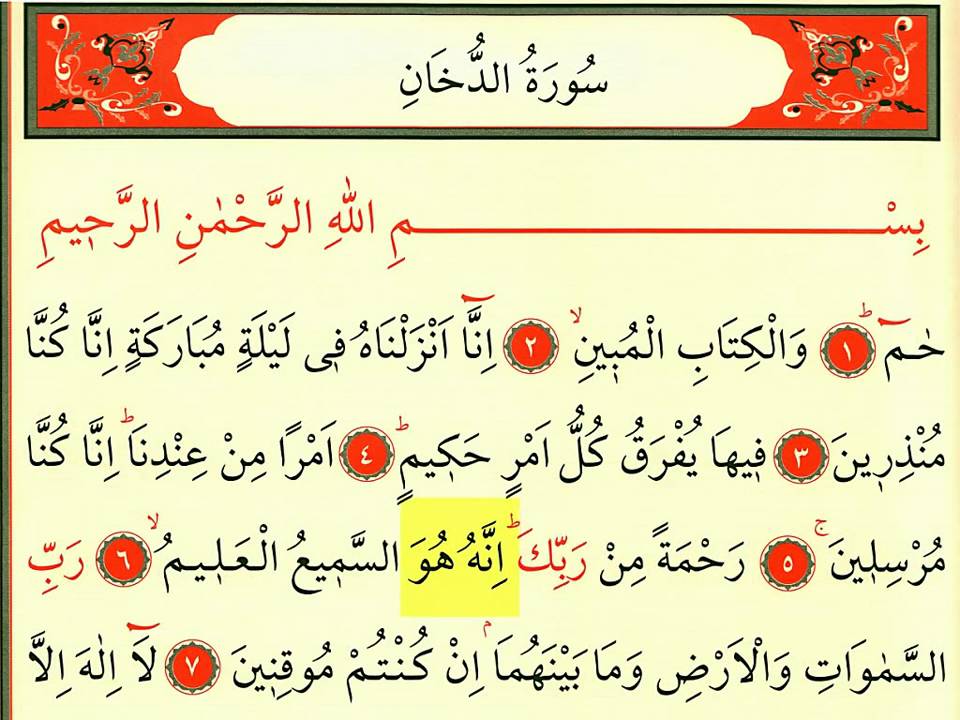 سُورَةُ الدُّخَانِ
بِسْمِ اللّٰهِ الرَّحْمٰنِ الرَّح۪يمِ
حٰمٓۜ ﴿١﴾ وَالْكِتَابِ الْمُب۪ينِۙ ﴿٢﴾ اِنَّٓا اَنْزَلْنَاهُ ف۪ى لَيْلَةٍ مُبَارَكَةٍ اِنَّا كُنَّا
مُنْذِر۪ينَ ﴿٣﴾ ف۪يهَا يُفْرَقُ كُلُّ اَمْرٍ حَك۪يمٍۜ ﴿٤﴾ اَمْرًا مِنْ عِنْدِنَاۜ اِنَّا كُنَّا
مُرْسِل۪ينَۚ ﴿٥﴾ رَحْمَةً مِنْ رَبِّكَۜ اِنَّهُ هُوَ السَّم۪يعُ الْعَل۪يمُۙ ﴿٦﴾ رَبِّ
السَّمٰوَاتِ وَالْاَرْضِ وَمَا بَيْنَهُمَاۢ اِنْ كُنْتُمْ مُوقِن۪ينَ ﴿٧﴾ لَٓا اِلٰهَ اِلَّا